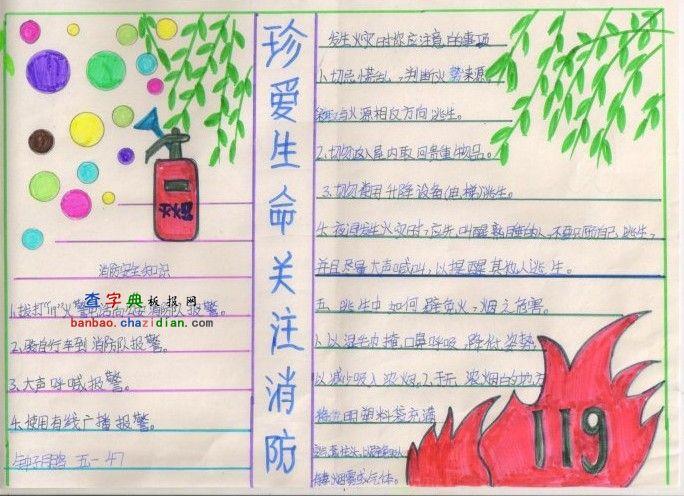 珍爱生命关注消防
火
消防安全知识
1.拨打"119"火警电话向公安消防队报警。
查字典板报网
banbao.chazidian.com
2.骑自行车到消防队报警。
3.大声呼喊报警。
4.使用有线广播报警。
五一47
发生火灾时你应注意的事项
1.切忌慌乱,判断火势来源,
与火源相反方向逃生。
2.切勿 入屋内取回贵重物品。
3.切勿使用升降设备(电梯)逃生。
4.夜间发生火灾时,应先叫醒熟睡的人,不要只顾自己逃生,
并且尽量大声喊叫,以提醒其他人逃生。
五、逃生中如何避免火,烟之危害。
1.以湿毛巾掩口鼻呼吸,降低姿势,
以减少吸入浓烟。2.于无浓烟的地方
将 用塑料袋充满
烟雾或气体。
119